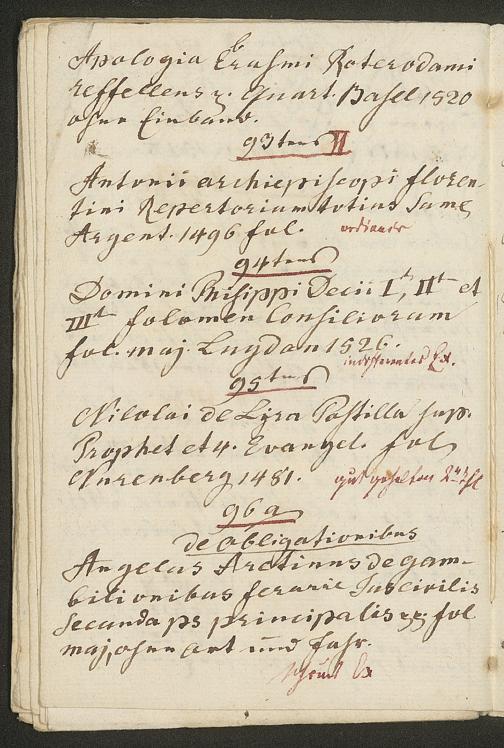 Apologia Erasmi Roterodami
reffellens ꝛ. Quart. Basel 1520
ohne Einband.
93tens II
Antonii archiepiscopi floren-
tini Repertorium totius Sume
Argent. 1496 fol. ordinair
94tens
Domini Philippi Decii It, IIt et
IIIt folumen Consiliorum
fol. maj. Lugdon 1526.
indifferentes Ex.
95tens
Nicolai de Lyra Postilla sup.
Prophet et 4. Evangel. fol
Nurenberg 1481. gut gehalten
96 a
de obligationibus
Angelus Aretinus de gam-
bilionibus ferarie Juscivilis
Secunda ps principalis ꝛc. fol
maj, ohne ort und Jahr.
schönes Ex